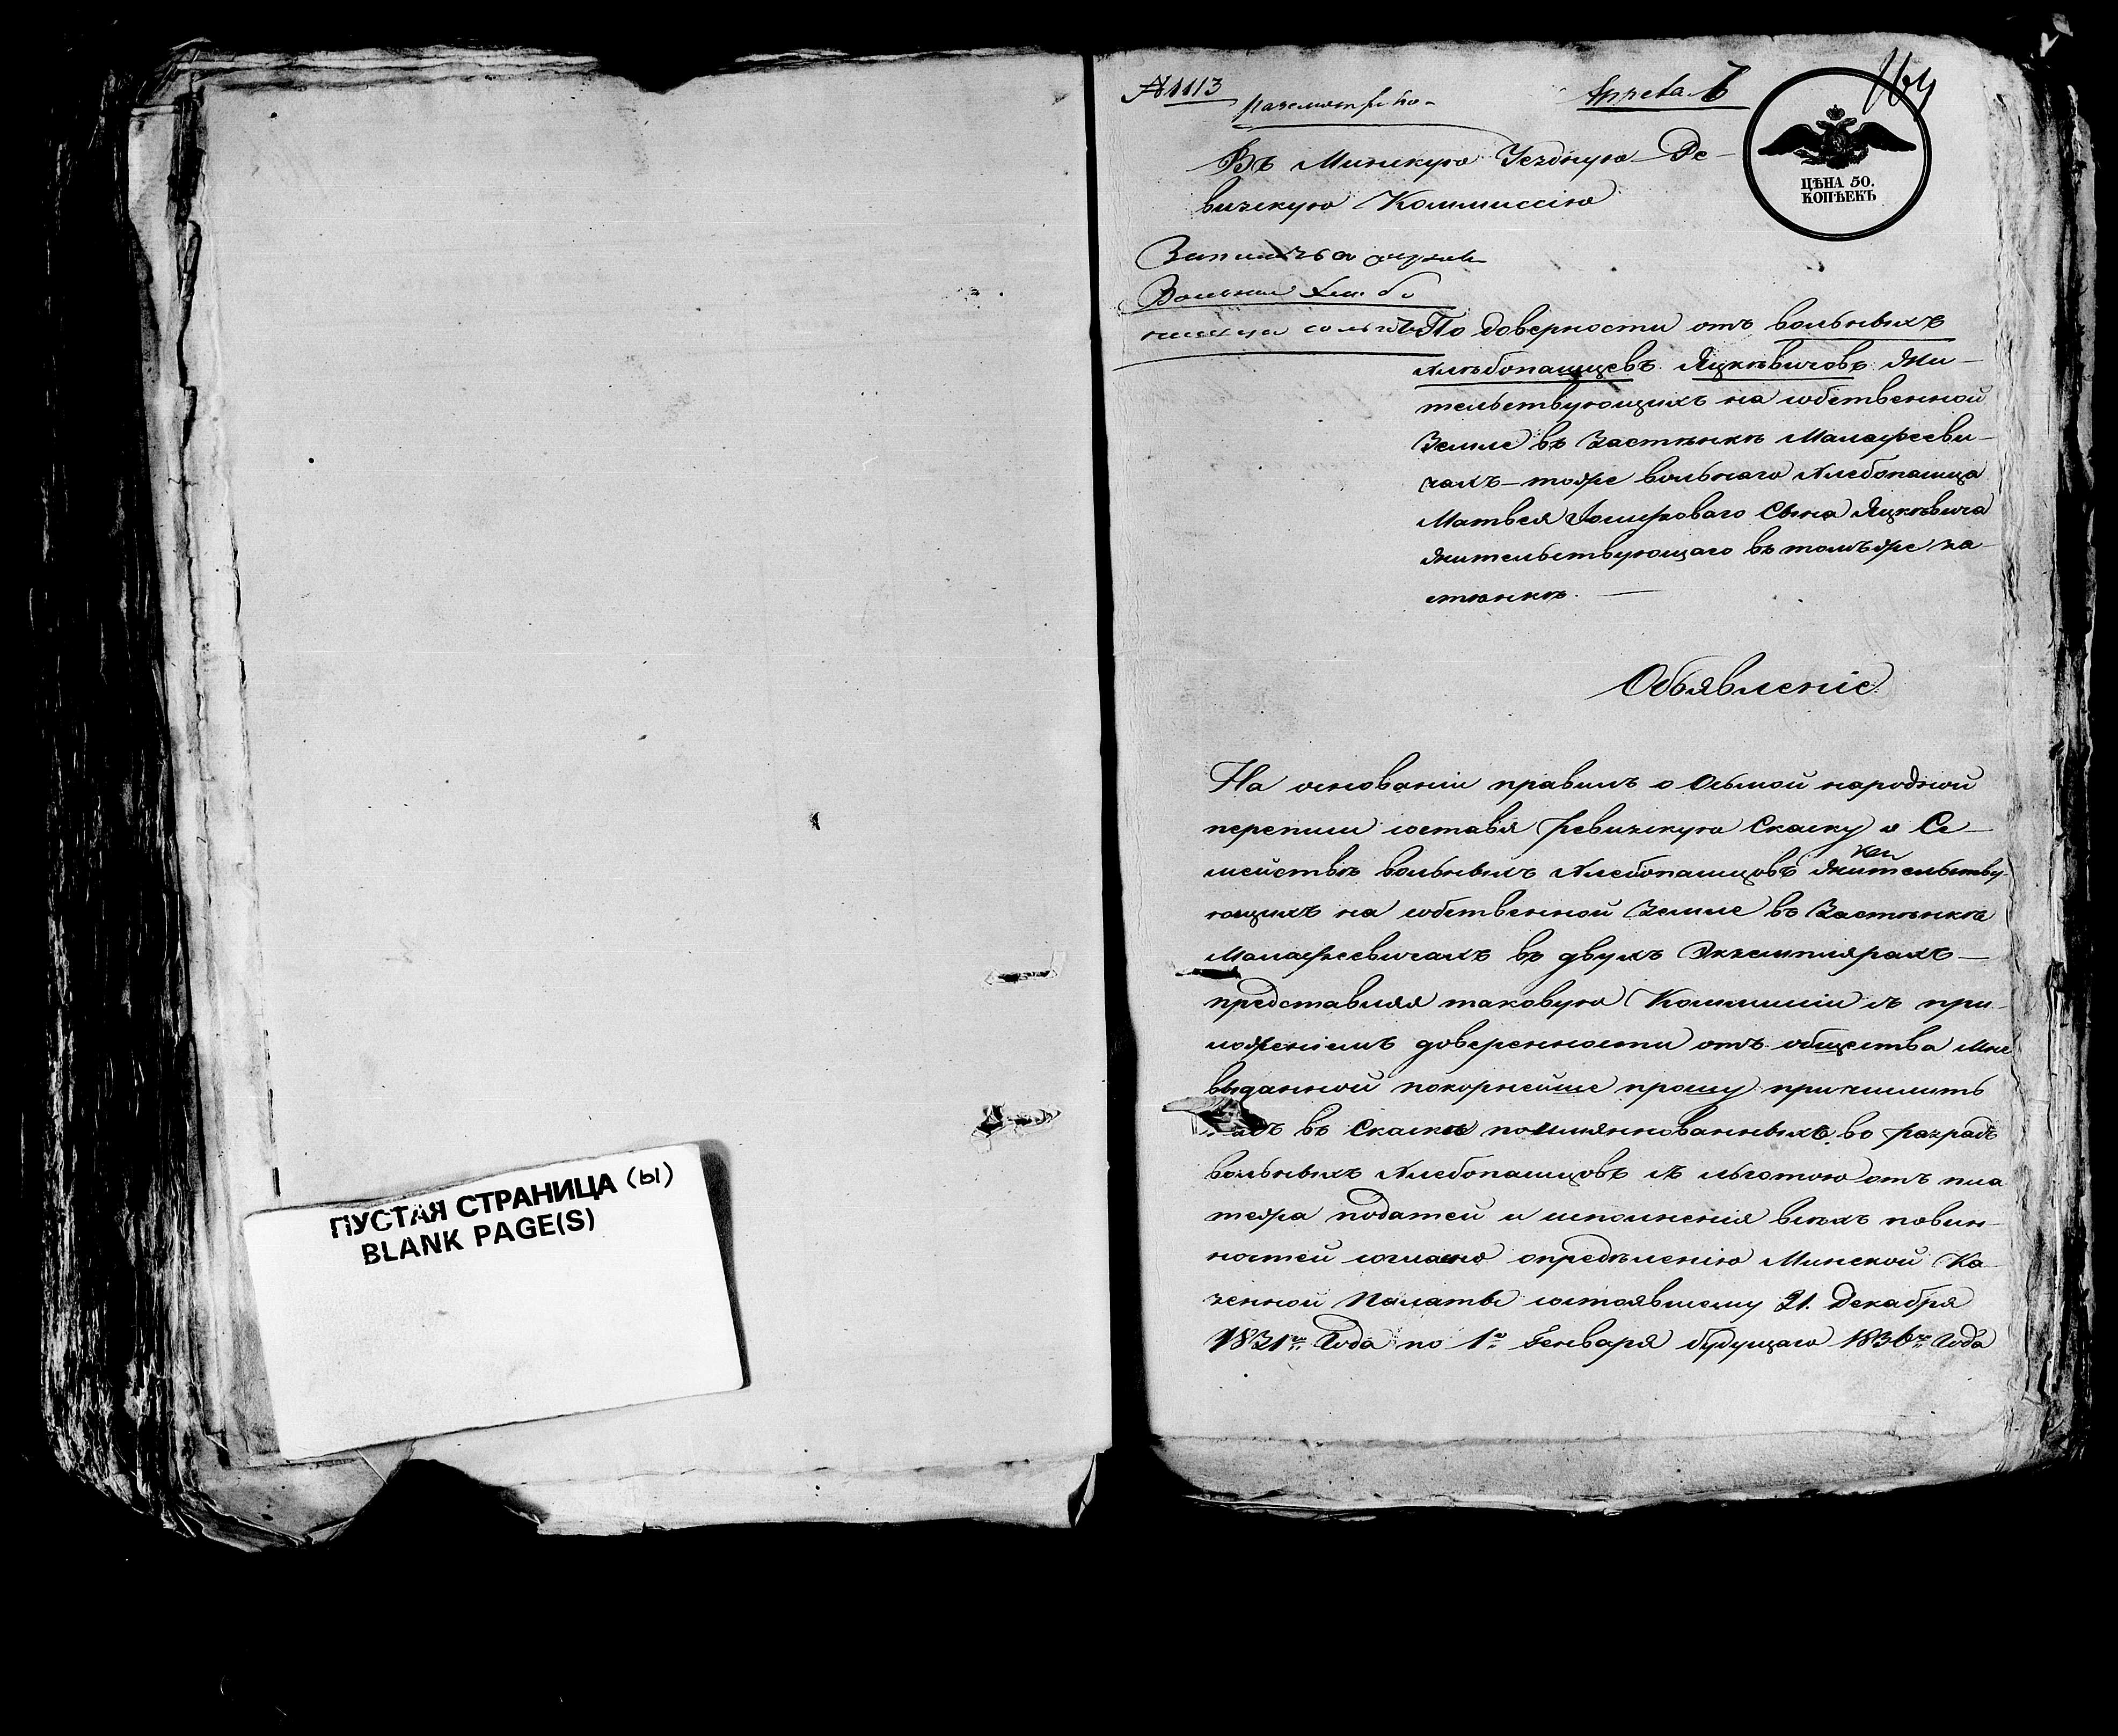 ПУСТАЯ СТРАНИЦА (ы)
BLANK PAGE(S)
№ 1113
164
ЦѢНА 50.
КОПѢЕКЪ
Въ Минскую Уездную Ре-
визскую Коммиссію
По доверности отъ вольныхъ
хлѣбопашцевъ Яцкѣвичовъ жи-
тельствующихъ на собственной
Земле въ Застѣнкѣ Малафеви-
чахъ – тоже вольнаго хлебопашца
Матвея Сына Яцкѣвича
жительствующаго въ томъ же за-
стѣнкѣ. —
Объявленіе
На основаніи правилъ о Осьмой народной
переписи составя ревизскую Скаску о Се-
мействѣ вольныхъ хлебопашцовъ жительству-
ющихъ на собственной Земле въ Застѣнкѣ
въ двухъ Экземплярахъ —
представляя таковую Коммисіи съ при-
ложеніемъ доверенности отъ общества мне
выданной покорнейше прошу причислить
въ Скаске поимянованныхъ во разрядъ
вольныхъ хлебопашцовъ съ льготою отъ пла
тежа податей и исполненія всѣхъ повин-
ностей согласно опредѣленію Минской Ка-
зенной Палаты состоявшему 21. Декабря
1831го Года по 1е Генваря будущаго 1836го Года